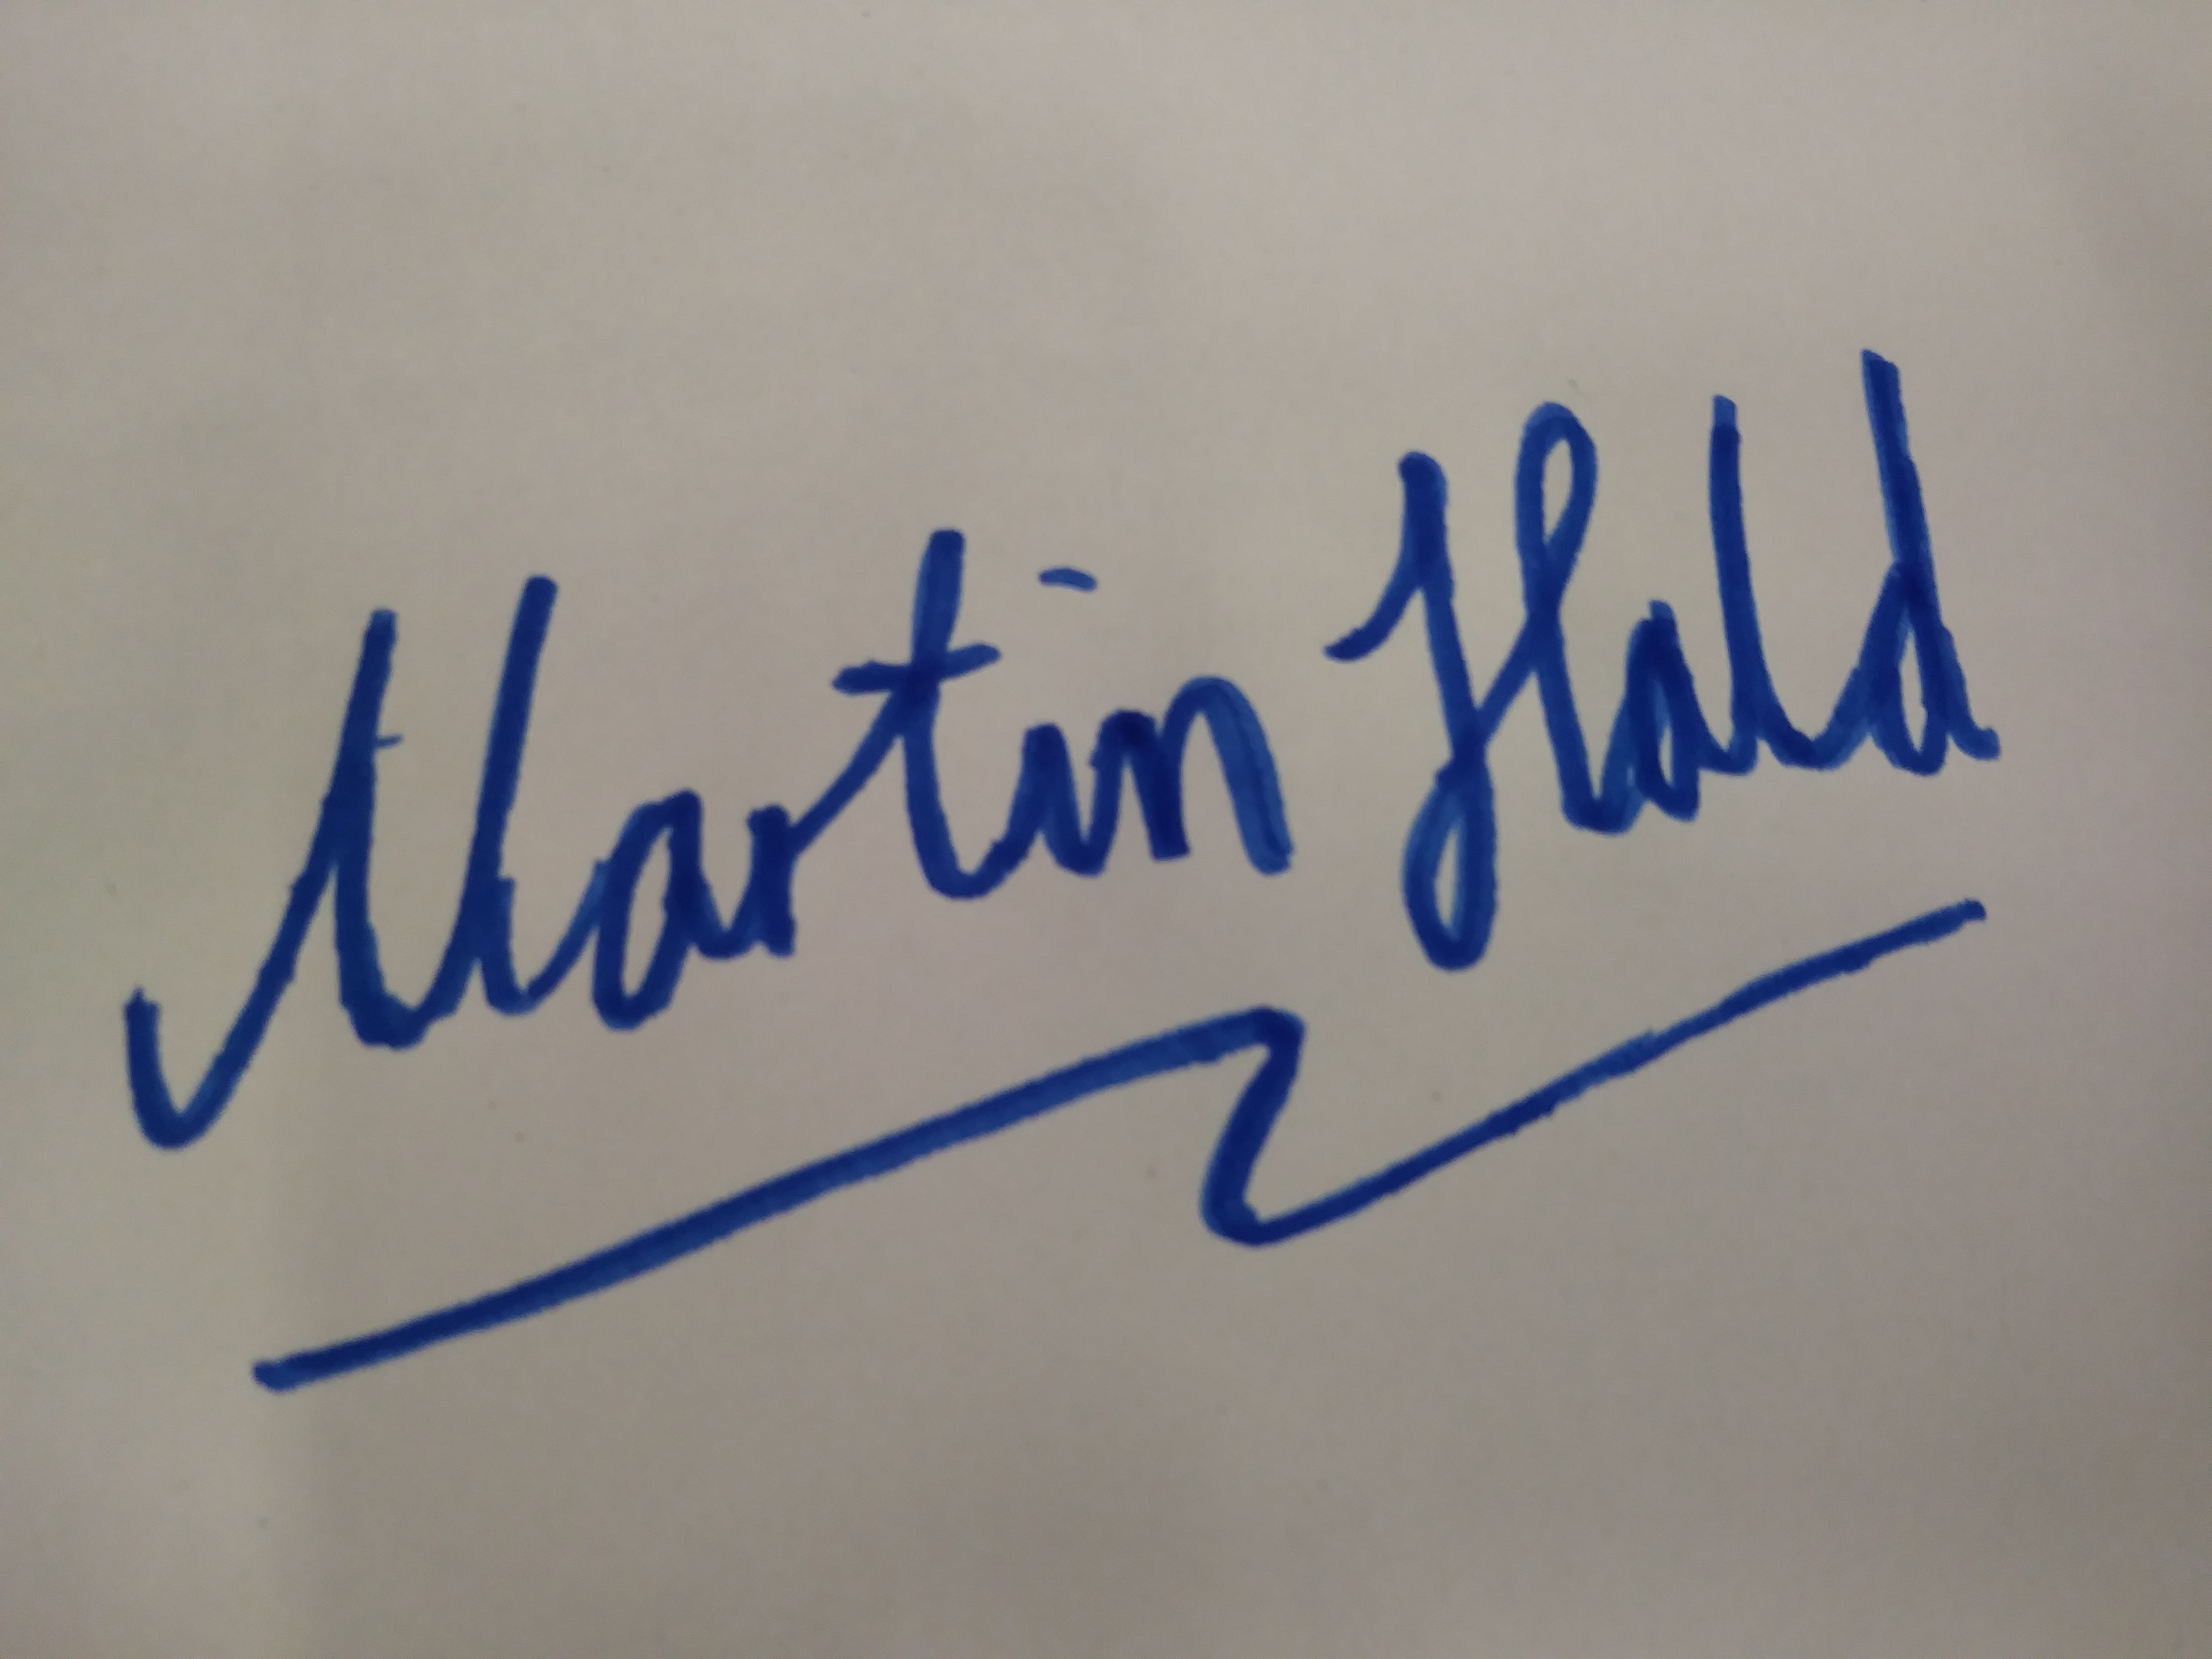 Martin Hald